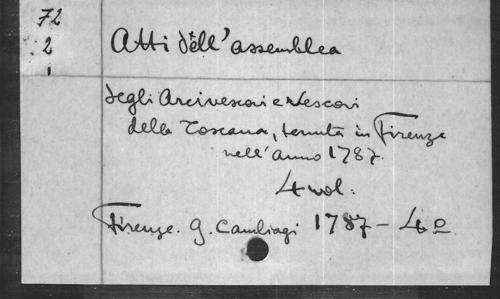 72
2
1
Atti dell'assemblea
degli Arcivescovi e Vescovi
della Toscana, tenuta in Firenze
nell'anno 1787.
4 vol.
Firenze. G. Cambiagi 1787 - 4º